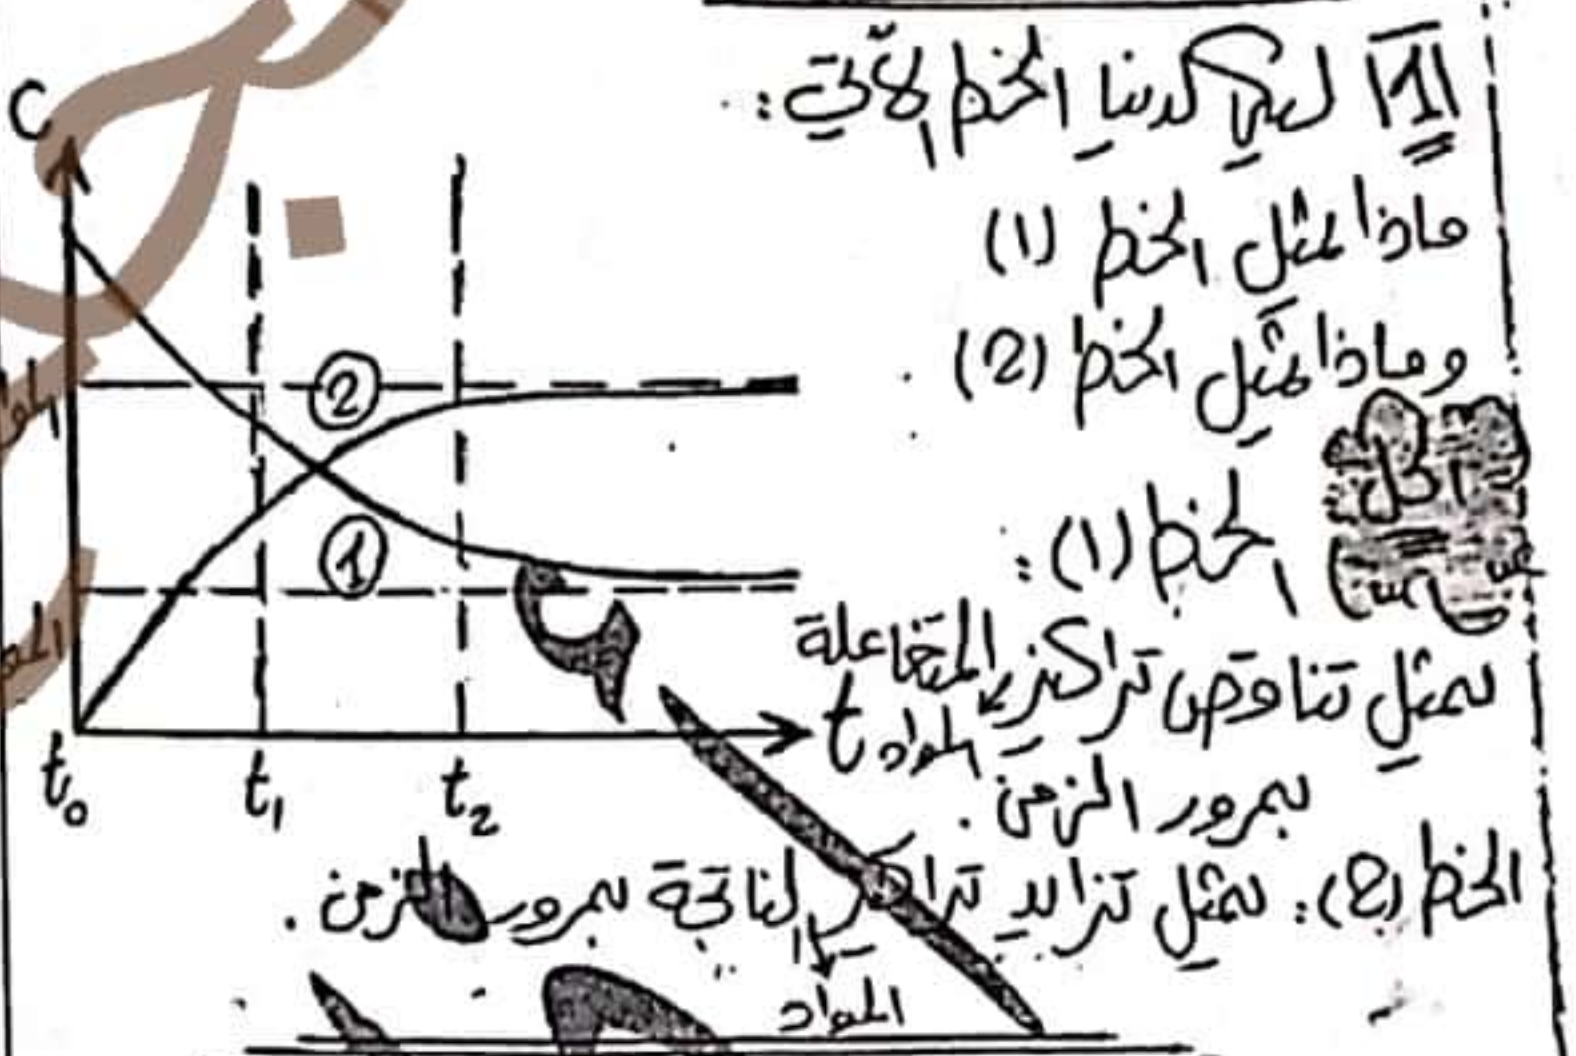 1 ليكن لدينا الخط الآتي:
ماذا يمثل الخط (1)
وماذا يمثل الخط (2)
الحل
الخط (1):
يمثل تناقص تراكيز المواد المتفاعلة
بمرور الزمن.
الخط (2): يمثل تزايد تراكيز المواد الناتجة بمرور الزمن.
C
2
1
t
t₀ t₁ t₂